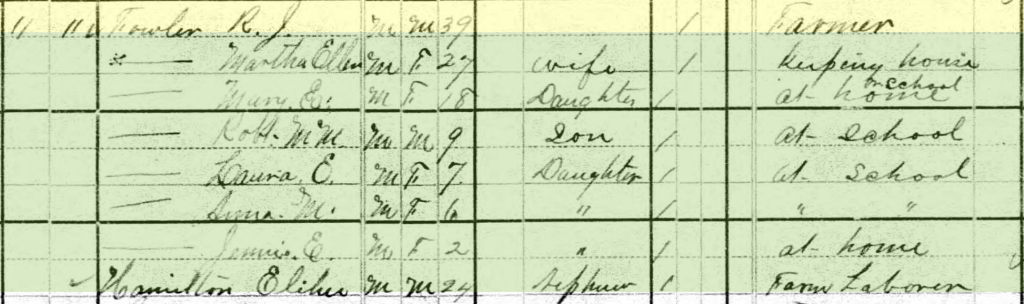 11 11 Fowler R. J. M M 39 1 Farmer
* — Martha Ellen M F 27 wife 1 Keeping house
— Mary. E. M F 18 Daughter 1 at home or School
— Robt. M M 9 Son 1 at School
— Laura. E. M F 7 Daughter 1 at School
— M. M F 6 " 1 " "
— Jennie. E. M F 2 " 1 at home
Hamilton Elihu M M 24 Nephew 1 Farm Laborer